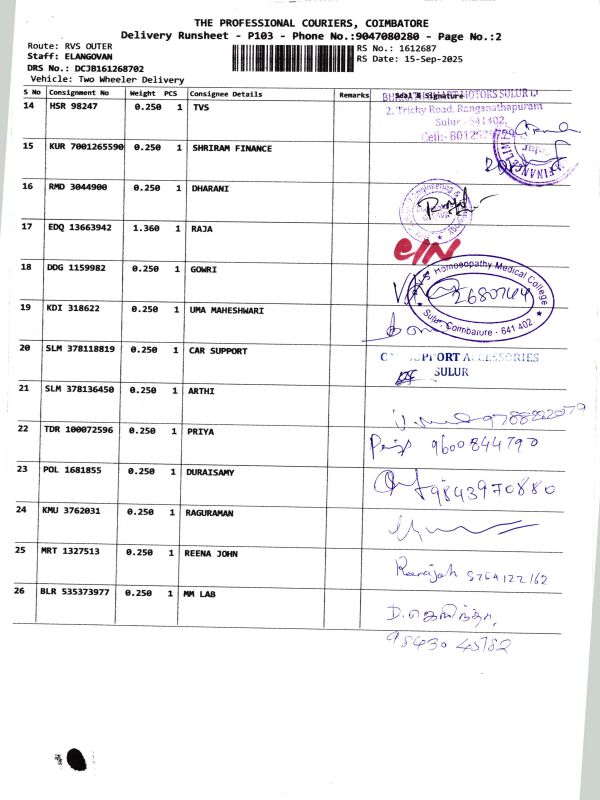 THE PROFESSIONAL COURIERS, COIMBATORE
Delivery Runsheet - P103 - Phone No.:9047080280 - Page No.:2
Route: RVS OUTER
Staff: ELANGOVAN
DRS No.: DCJB161268702
Vehicle: Two Wheeler Delivery
RS No.: 1612687
RS Date: 15-Sep-2025
S No Consignment No Weight PCS Consignee Details Remarks Seal & Signature
14 HSR 98247 0.250 1 TVS
MOTORS SULUR
2. Trichy Road, Ranganathapuram
Sulur - 641402,
Cell:-
15 KUR 7001265590 0.250 1 SHRIRAM FINANCE
16 RMD 3044900 0.250 1 DHARANI
17 EDQ 13663942 1.360 1 RAJA
18 DDG 1159982 0.250 1 GOWRI
Homoeopathy Medical College
Sulur, Coimbatore - 641 402.
19 KDI 318622 0.250 1 UMA MAHESHWARI
20 SLM 378118819 0.250 1 CAR SUPPORT
SUPPORT ACCESSORIES
SULUR
21 SLM 378136450 0.250 1 ARTHI
22 TDR 100072596 0.250 1 PRIYA
9600844790
23 POL 1681855 0.250 1 DURAISAMY
9843970880
24 KMU 3762031 0.250 1 RAGURAMAN
25 MRT 1327513 0.250 1 REENA JOHN
26 BLR 535373977 0.250 1 MM LAB